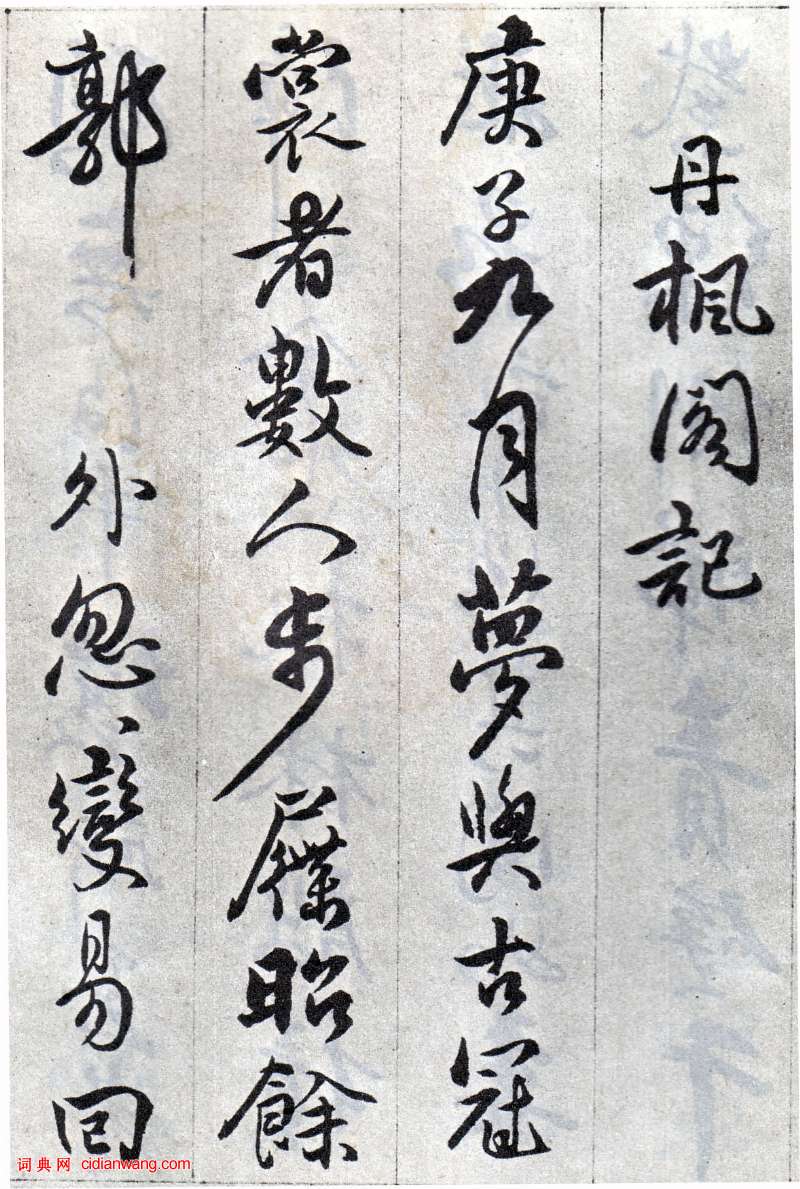 丹楓閣記
庚子九月夢與古冠
裳者數人步屧昭餘
郭外忽〻變易囘
词典网 cidianwang.com